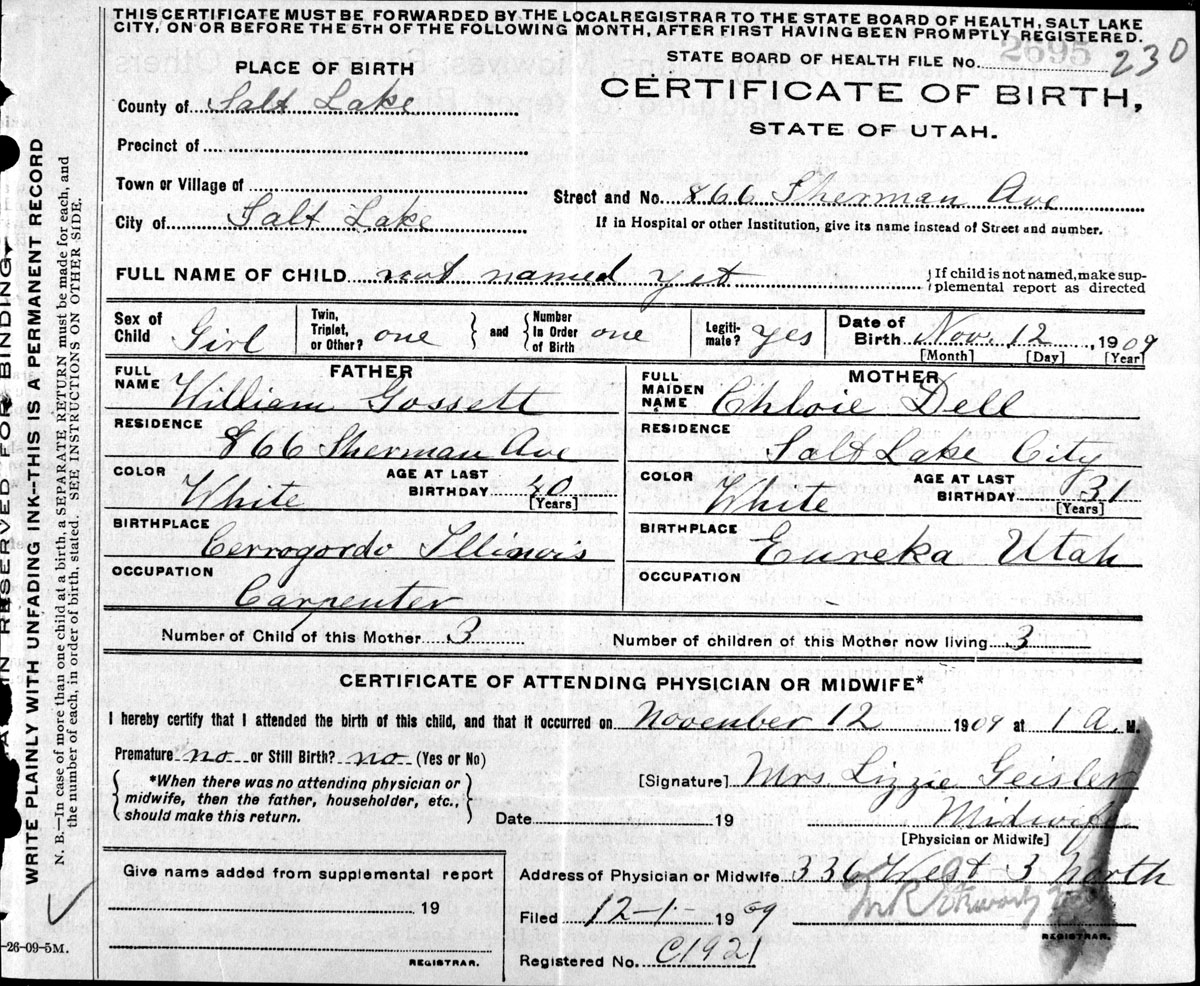 THIS CERTIFICATE MUST BE FORWARDED BY THE LOCAL REGISTRAR TO THE STATE BOARD OF HEALTH, SALT LAKE
CITY, ON OR BEFORE THE 5TH OF THE FOLLOWING MONTH, AFTER FIRST HAVING BEEN PROMPTLY REGISTERED.
STATE BOARD OF HEALTH FILE No. 2695 230
PLACE OF BIRTH
CERTIFICATE OF BIRTH,
STATE OF UTAH.
County of Salt Lake
Precinct of
Town or Village of
Street and No. 866 Sherman Ave
City of Salt Lake
If in Hospital or other Institution, give its name instead of Street and number.
FULL NAME OF CHILD not named yet
If child is not named, make sup-
plemental report as directed
Sex of Child Girl
Twin, Triplet, or Other? one and Number In Order of Birth one
Legiti-mate? yes
Date of Birth Nov. 12, 1909
[Month] [Day] [Year]
FATHER
FULL NAME William Gossett
RESIDENCE
866 Sherman Ave
COLOR White AGE AT LAST BIRTHDAY 40 [Years]
BIRTHPLACE
Cerrogordo Illinois
OCCUPATION
Carpenter
MOTHER
FULL MAIDEN NAME Chloie Dell
RESIDENCE
Salt Lake City
COLOR White AGE AT LAST BIRTHDAY 31 [Years]
BIRTHPLACE
Eureka Utah
OCCUPATION
-
Number of Child of this Mother 3 Number of children of this Mother now living 3
CERTIFICATE OF ATTENDING PHYSICIAN OR MIDWIFE*
I hereby certify that I attended the birth of this child, and that it occurred on November 12 1909 at 1 a. M.
Premature no or Still Birth? no (Yes or No)
*When there was no attending physician or
midwife, then the father, householder, etc.,
should make this return.
[Signature] Mrs Lizzie Geisler
Date 19 Midwife
[Physician or Midwife]
Give name added from supplemental report
19
REGISTRAR.
Address of Physician or Midwife 336 West 3 North
Filed 12-1- 1909
REGISTRAR.
Registered No. C1921
-26-09-5M.
RESERVED FOR BINDING
WRITE PLAINLY WITH UNFADING INK--THIS IS A PERMANENT RECORD
N. B.--In case of more than one child at a birth, a SEPARATE RETURN must be made for each, and
the number of each, in order of birth, stated. SEE INSTRUCTIONS ON OTHER SIDE.